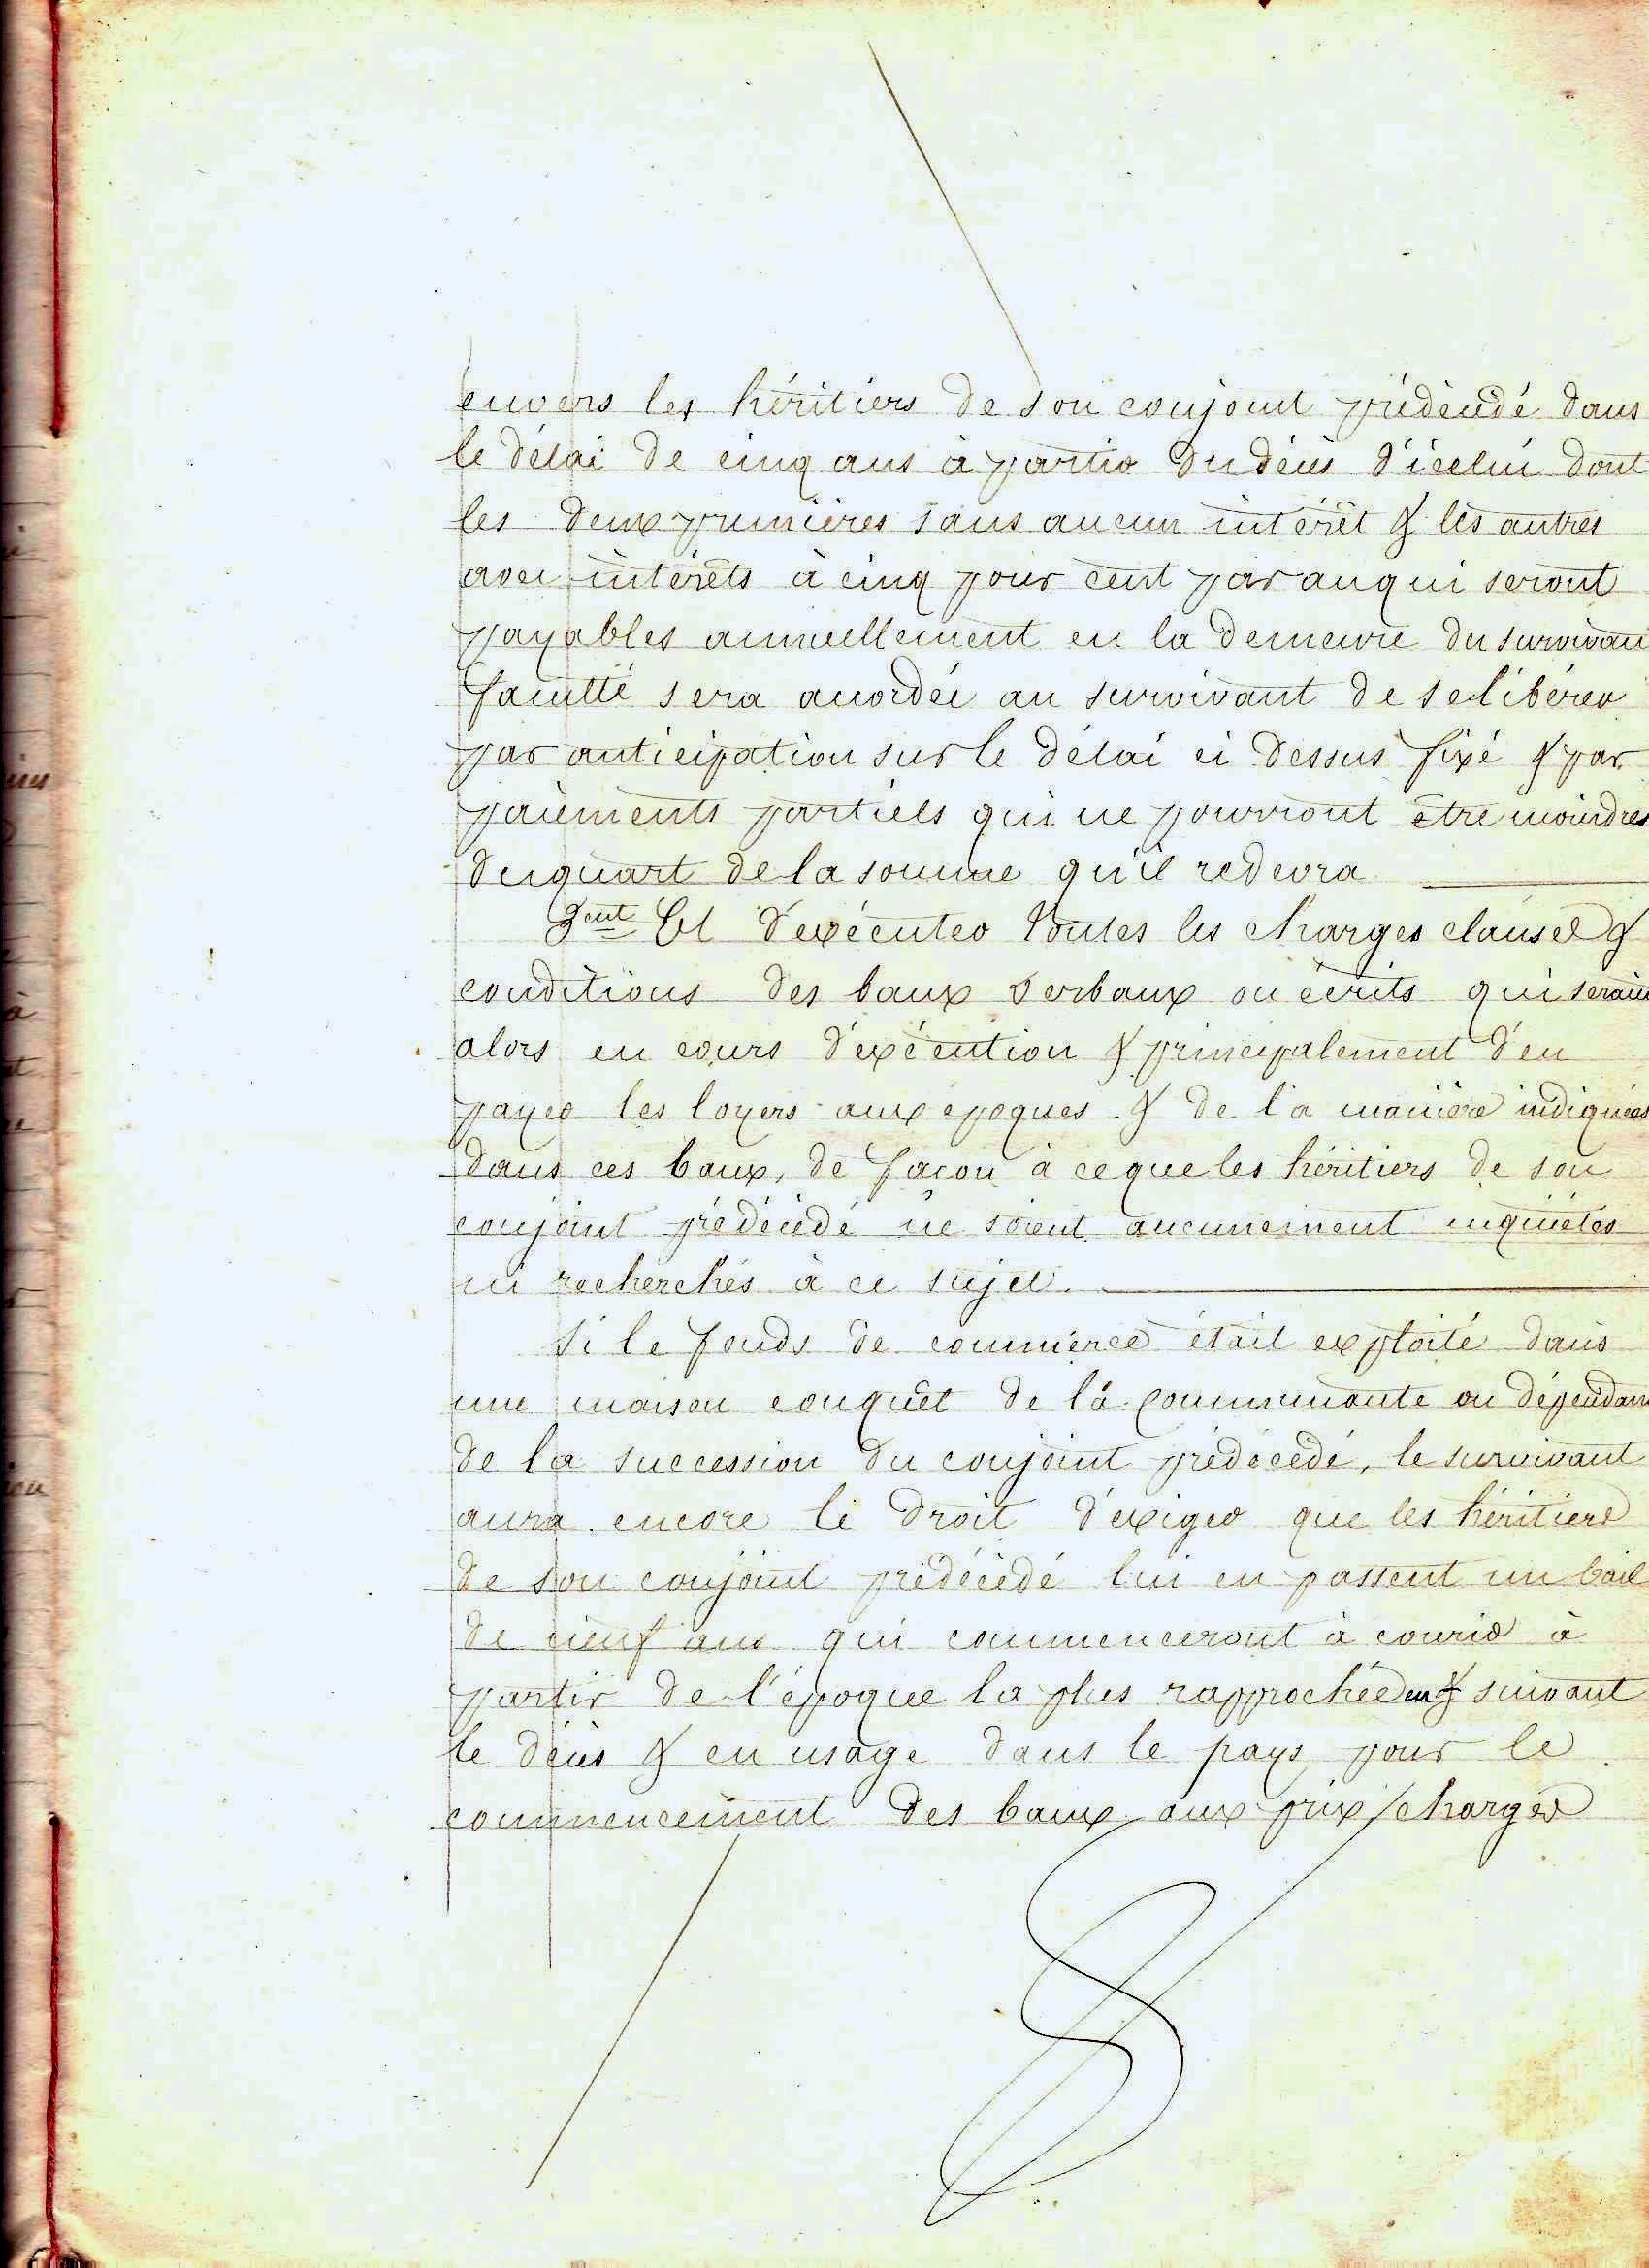 envers les héritiers de son conjoint prédécédé dans
le délai de cinq ans à partir du décès d'icelui dont
les deux premières sans aucun intérêt & les autres
avec intérêts à cinq pour cent par an qui seront
payables annuellement en la demeure du survivan
faculté sera accordée au survivant de se libérer
par anticipation sur le délai ci dessus fixé & par
paiements partiels qui ne pourront être moindres
du quart de la somme qu'il redevra
3ent Et d'exécuter toutes les charges clauses &
conditions des baux verbaux ou écrits qui seraien
alors en cours d'exécution & principalement d'en
payer les loyers aux époques & de la manière indiquées
dans ces baux, de façon à ce que les héritiers de son
conjoint prédécédé ne soient aucunement inquiétés
ni recherchés à ce sujet.
Si le fonds de commerce était exploité dans
une maison conquêt de la communauté ou dépendan
de la succession du conjoint prédécédé, le survivant
aura encore le droit d'exiger que les héritiers
de son conjoint prédécédé lui en passent un bail
de neuf ans qui commenceront à courir à
partir de l'époque la plus rapprochée & suivant
le décès & en usage dans le pays pour le
commencement des baux aux prix charges